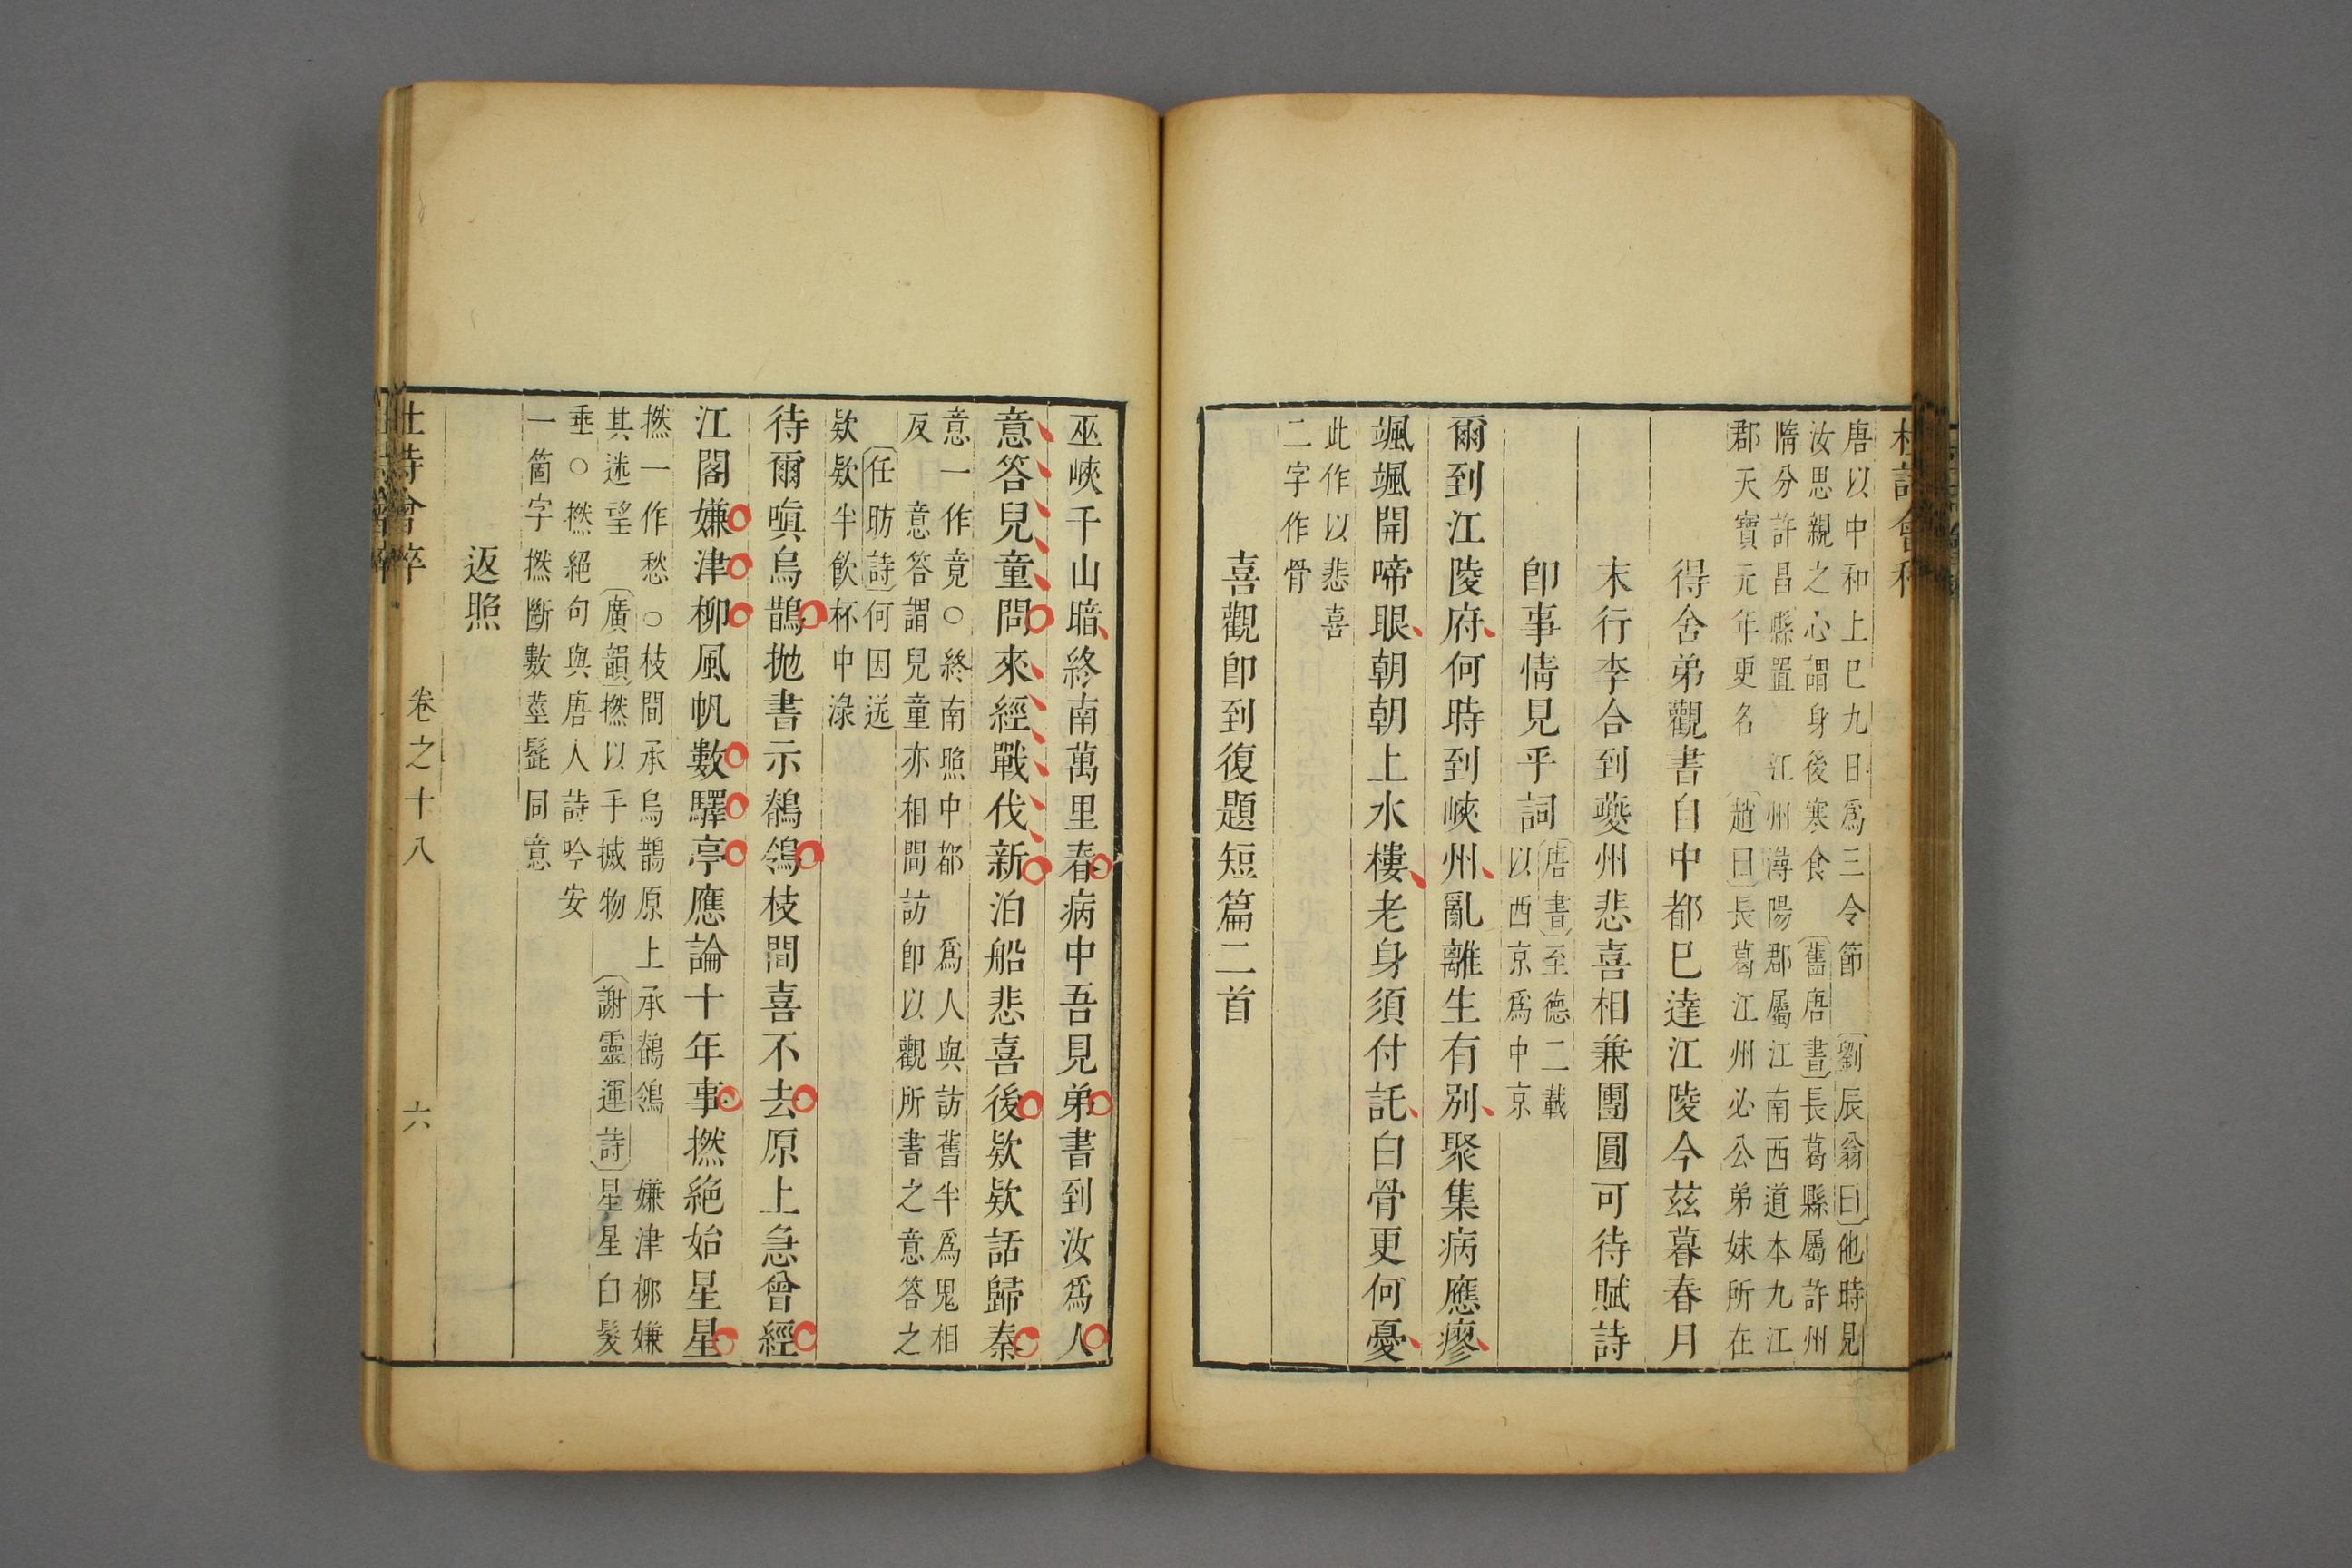 唐以中和上巳九日爲三令節 劉辰翁曰他時見
汝思親之心謂身後寒食 舊唐書長葛縣屬許州
隋分許昌縣置 江州潯陽郡屬江南西道本九江
郡天寶元年更名 趙曰長葛江州必公弟妹所在
得舍弟觀書自中都巳達江陵今茲暮春月
末行李合到夔州悲喜相兼團圓可待賦詩
卽事情見乎詞
唐書至德二載
以西京爲中京
爾到江陵府何時到峽州亂離生有别聚集病應瘳
颯颯開啼眼朝朝上水樓老身須付託白骨更何憂
此作以悲喜
二字作骨
喜觀卽到復題短篇二首
巫峽千山暗終南萬里春病中吾見弟書到汝爲人
意答兒童問來經戰伐新泊船悲喜後欵欵話歸秦
意一作竟○終南照中都 爲人與訪舊半爲鬼相
反 意答謂兒童亦相問訪卽以觀所書之意答之
任昉詩何因送
欵欵半飲杯中渌
待爾嗔烏鵲抛書示鶺鴒枝間喜不去原上急曾經
江閣嫌津柳風帆數驛亭應論十年事撚絕始星星
撚一作愁○枝間承烏鵲原上承鶺鴒 嫌津柳嫌
其迷望 廣韻撚以手搣物 謝靈運詩星星白髮
垂○撚絕句與唐人詩吟安
一箇字撚斷數莖髭同意
返照
杜詩會稡
卷之十八
六